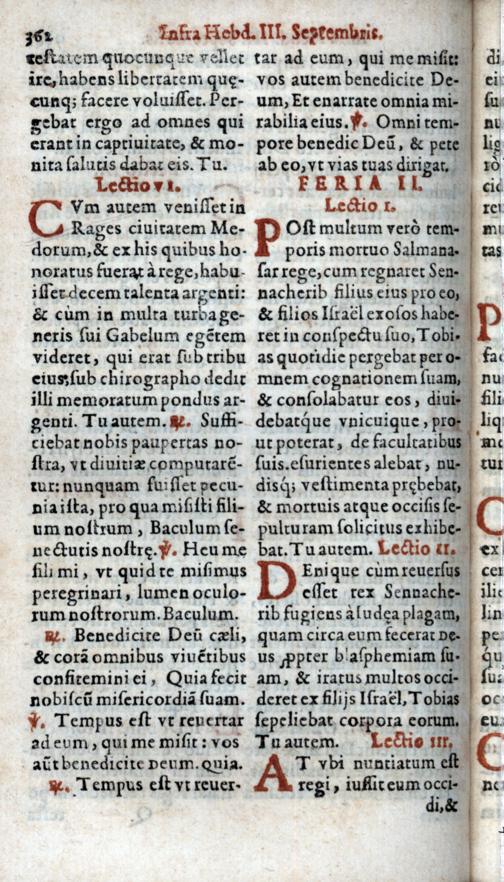 362
Infra Hebd. III. Septembris.
testatem quocunque vellet
ire, habens libertatem quę-
cunq; facere voluisset. Per-
gebat ergo ad omnes qui
erant in captiuitate, & mo-
nita salutis dabat eis. Tu.
Lectio vi.
CVm autem venisset in
Rages ciuitatem Me-
dorum, & ex his quibus ho-
noratus fuerat à rege, habu-
isset decem talenta argenti:
& cùm in multa turba ge-
neris sui Gabelum egētem
videret, qui erat sub tribu
eius; sub chirographo dedit
illi memoratum pondus ar-
genti. Tu autem. ℟. Suffi-
ciebat nobis paupertas no-
stra, vt diuitiæ computarē-
tur: nunquam fuisset pecu-
nia ista, pro qua misisti fili-
um nostrum, Baculum se-
nectutis nostrę. ℣. Heu me
fili mi, vt quid te misimus
peregrinari, lumen oculo-
rum nostrorum. Baculum.
℟. Benedicite Deū cæli,
& corā omnibus viuētibus
confitemini ei, Quia fecit
nobiscū misericordiā suam.
℣. Tempus est vt reuertar
ad eum, qui me misit: vos
aūt benedicite Deum. Quia.
℟. Tempus est vt reuer-
tar ad eum, qui me misit:
vos autem benedicite De-
um, Et enarrate omnia mi-
rabilia eius. ℣. Omni tem-
pore benedic Deū, & pete
ab eo, vt vias tuas dirigat.
FERIA II.
Lectio i.
POst multum verò tem-
poris mortuo Salmana-
sar rege, cum regnaret Sen-
nacherib filius eius pro eo,
& filios Israël exosos habe-
ret in conspectu suo, Tobi-
as quotidie pergebat per o-
mnem cognationem suam,
& consolabatur eos, diui-
debatque vnicuique, pro-
ut poterat, de facultatibus
suis. esurientes alebat, nu-
disq; vestimenta prębebat,
& mortuis atque occisis se-
pulturam solicitus exhibe-
bat. Tu autem. Lectio ii.
DEnique cùm reuersus
esset rex Sennache-
rib fugiens à Iudęa plagam,
quam circa eum fecerat De-
us ꝓpter blasphemiam su-
am, & iratus multos occi-
deret ex filijs Israël, Tobias
sepeliebat corpora eorum.
Tu autem. Lectio iii.
AT vbi nuntiatum est
regi, iussit eum occi-
di, &